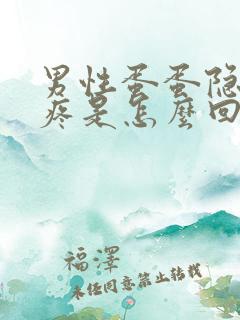 男性蛋蛋隐
疼是怎麼回
福澤
未经同意禁止转载